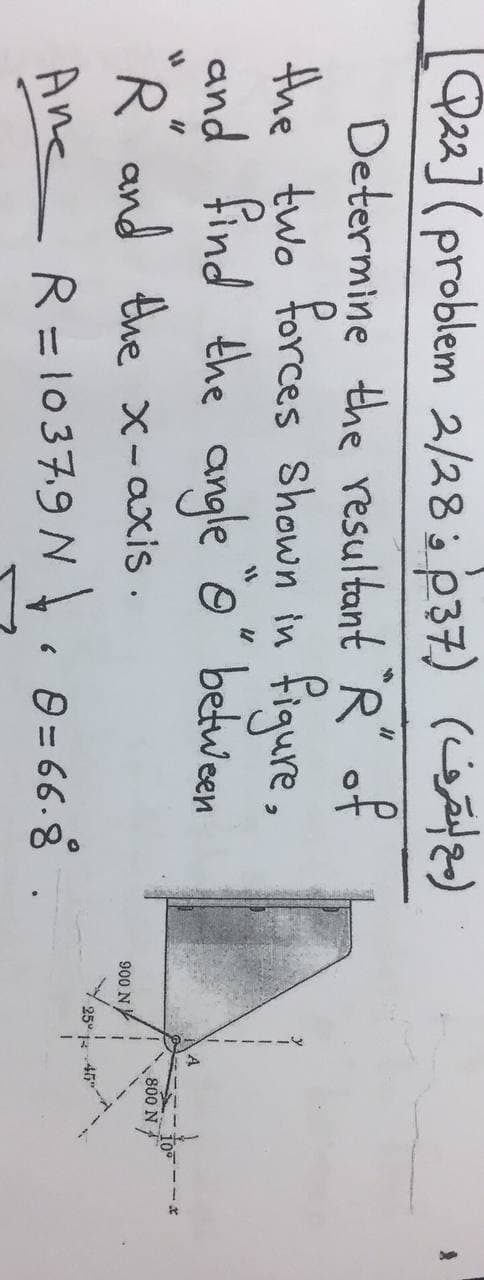 [Q22] (problem 2/28 ; p37) (مع التصرف)
Determine the resultant "R" of
the two forces Shown in figure,
and find the angle "θ" between
"R" and the x-axis.
Ans R = 1037.9 N ↓, θ = 66.8° .
y
A
x
10°
800 N
900 N
25°
45°